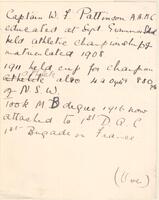 Captain W. F. Pattinson A.A.M.C
educated at Syd Grammar School
held athletic championship
matriculated 1908
1911 held cup for champion
athlete also 440 yds & 880 yds
of N.S.W.
took M B degree 1916 now
attached to 1st D.A.C
1st Brigade in France
(Over)